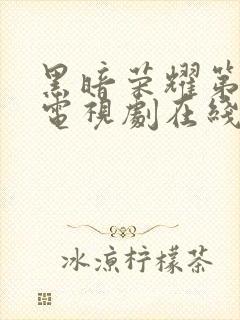 黑暗荣耀第
電視劇在綫
冰凉柠檬茶